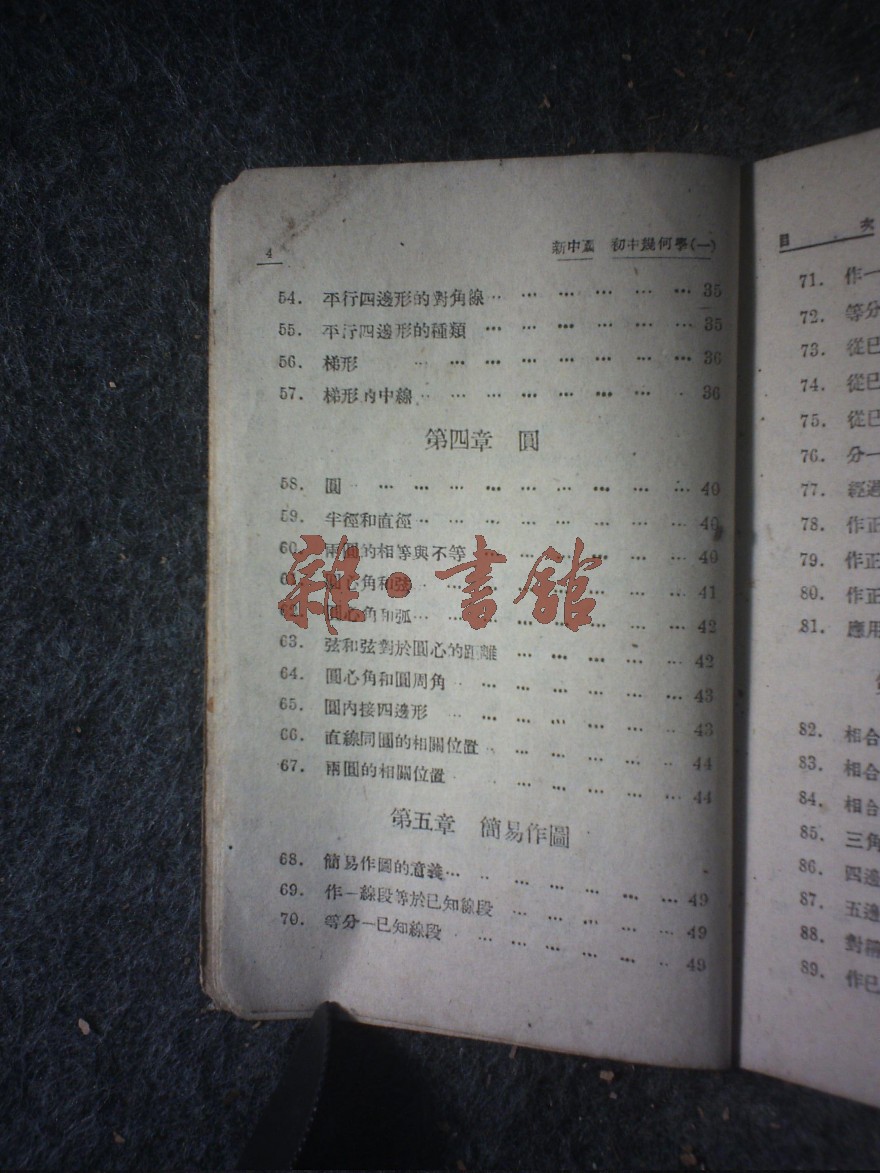 4
新中華 初中幾何學(一)
54. 平行四邊形的對角線 … … … … … … 35
55. 平行四邊形的種類 … … … … … … 35
56. 梯形 … … … … … … … … 36
57. 梯形的中線 … … … … … … … 36
第四章 圓
58. 圓 … … … … … … … … … 40
59. 半徑和直徑 … … … … … … … … 40
60. 兩圓的相等與不等 … … … … … … 40
61. 圓心角和弦 … … … … … … … … 41
62. 圓心角和弧 … … … … … … … … 42
63. 弦和弦對於圓心的距離 … … … … … 42
64. 圓心角和圓周角 … … … … … … … 43
65. 圓內接四邊形 … … … … … … … 43
66. 直線同圓的相關位置 … … … … … … 44
67. 兩圓的相關位置 … … … … … … 44
第五章 簡易作圖
68. 簡易作圖的意義 … … … … … … … 49
69. 作一線段等於已知線段 … … … … … 49
70. 等分一已知線段 … … … … … … 49
雜·書館
目 次
71. 作一
72. 等分
73. 從已
74. 從已
75. 從已
76. 分一
77. 經過
78. 作正
79. 作正
80. 作正
81. 應用
82. 相合
83. 相合
84. 相合
85. 三角
86. 四邊
87. 五邊
88. 對稱
89. 作已